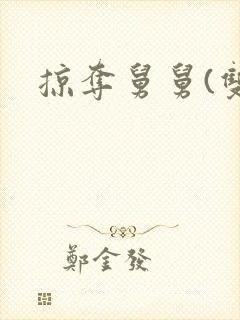 掠奪舅舅(雙
鄭金發